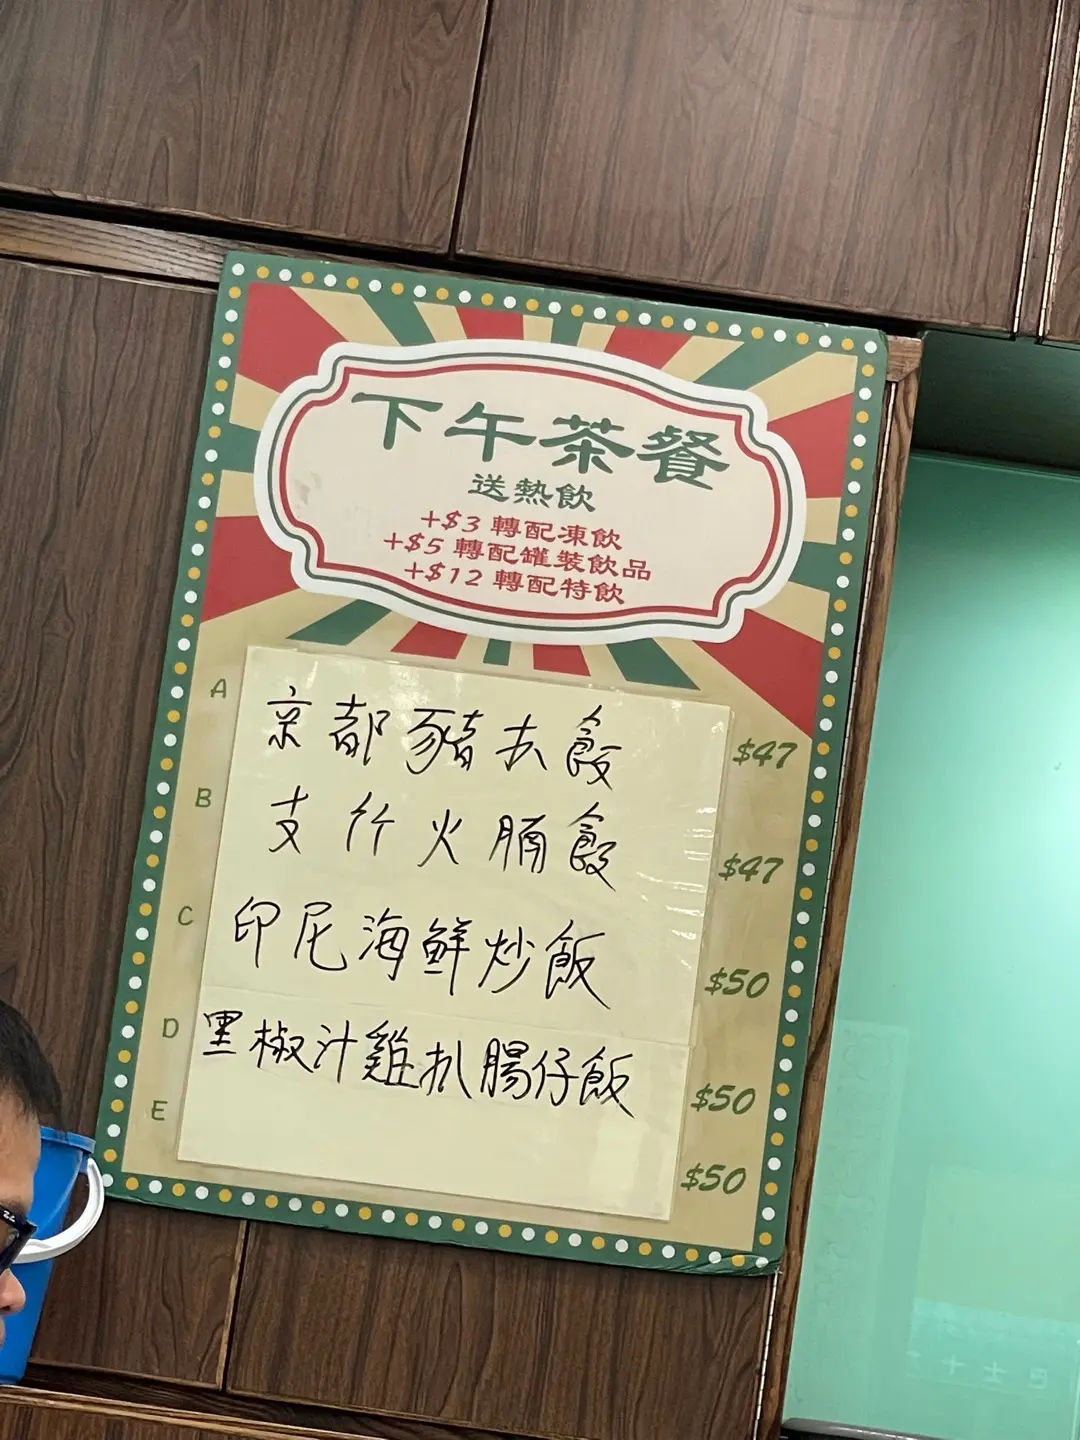 下午茶餐
送熱飲
+$3 轉配凍飲
+$5 轉配罐裝飲品
+$12 轉配特飲
A 京都豬扒飯 $47
B 支竹火腩飯 $47
C 印尼海鮮炒飯 $50
D 黑椒汁雞扒腸仔飯 $50
E $50